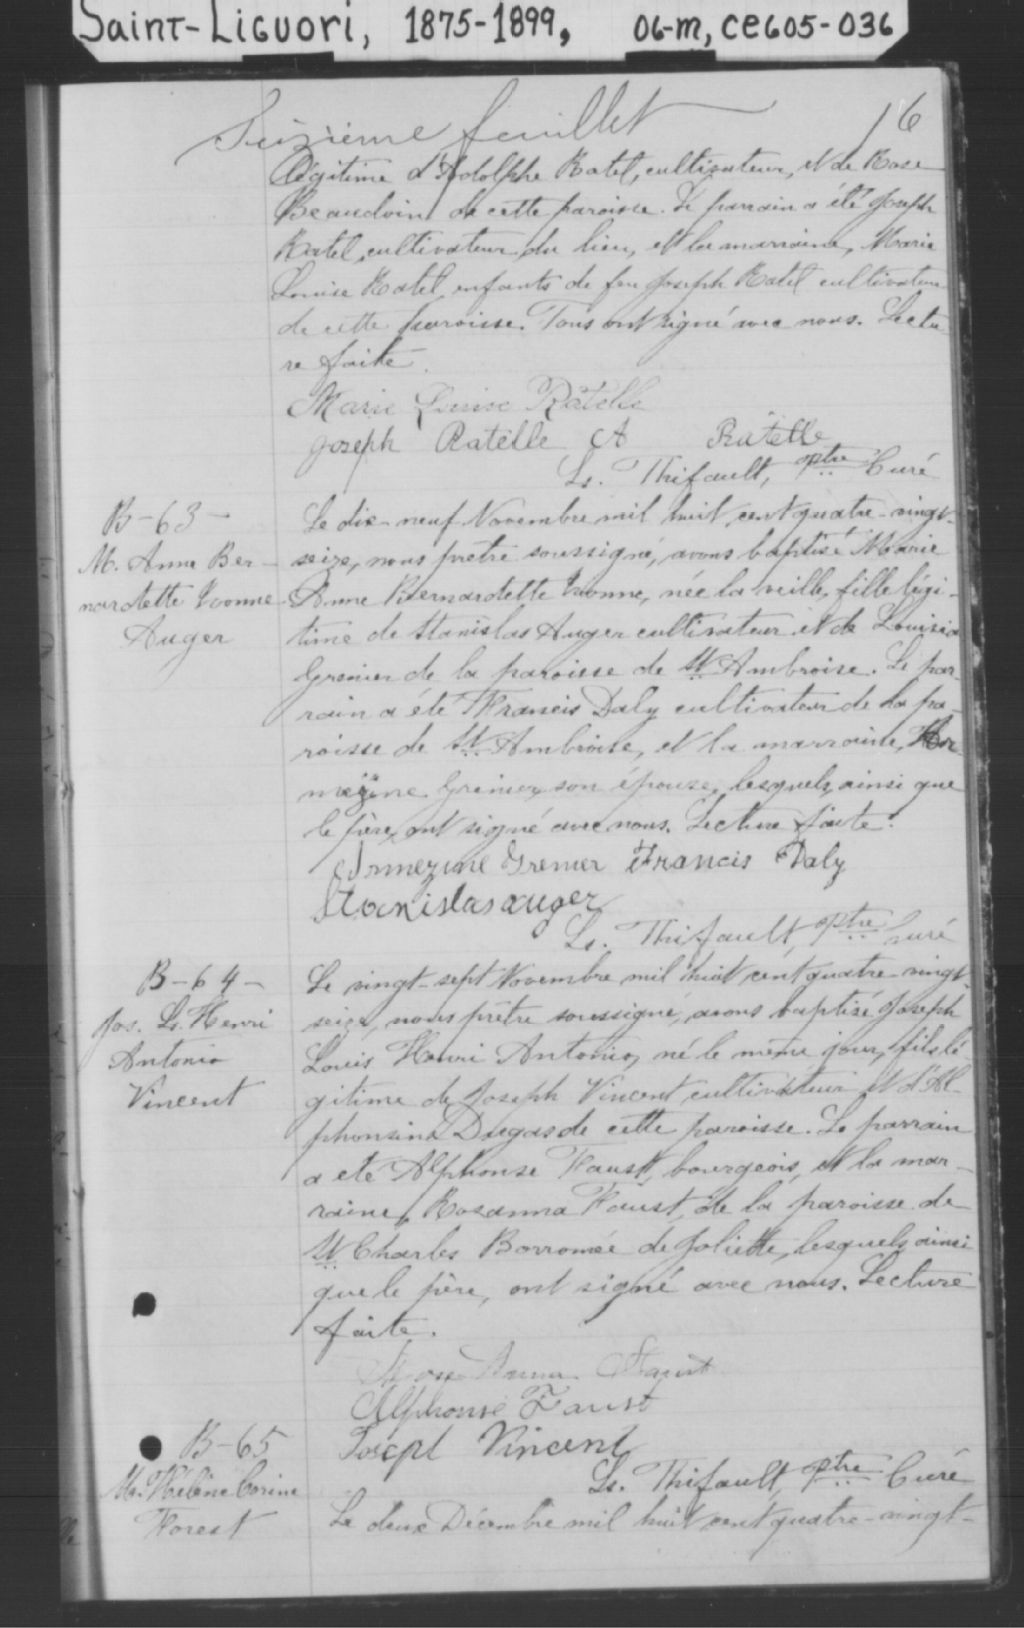 Saint-Liguori, 1875-1899, 06-M, CE605-036
Seizième feuillet 16
légitime d'Adolphe Ratel, cultivateur, et de Rose
Beaudoin de cette paroisse. Le parrain a été Joseph
Ratel, cultivateur du lieu, et la marraine, Marie
Louise Ratel, enfants de feu Joseph Ratel cultivateur
de cette paroisse. Tous ont signé avec nous. Lectu
re faite.
Marie Louise Râtelle
Joseph Ratelle A Ratelle
Ls. Thifault, ptre Curé
B-63-
M. Anna Ber-
nardette Yvonne
Auger
Le dix-neuf Novembre mil huit cent quatre-vingt-
seize, nous prêtre soussigné, avons baptisé Marie
Anne Bernardette Yvonne, née la veille, fille légi-
time de Stanislas Auger cultivateur et de Louisia
Grenier de la paroisse de St Ambroise. Le par-
rain a été Francis Daly cultivateur de la pa-
roisse de St Ambroise, et la marraine, Her-
mézine Grenier, son épouse, lesquels, ainsi que
le père, ont signé avec nous. Lecture faite.
Ermezine Grenier Francis Daly
Stanislas auger
Ls. Thifault, ptre curé
B-64-
Jos. Ls. Henri
Antonio
Vincent
Le vingt-sept Novembre mil huit cent quatre-vingt-
seize, nous prêtre soussigné, avons baptisé Joseph
Louis Henri Antonio, né le même jour, fils lé-
gitime de Joseph Vincent cultivateur et d'Al-
phonsina Dugas de cette paroisse. Le parrain
a ete Alphonse Faust, bourgeois, et la mar-
raine, Rosanna Faust, de la paroisse de
St Charles Borromée de Joliette, lesquels, ainsi
que le père, ont signé avec nous. Lecture
faite.
Anna Faust
Alphonse Faust
Joseph Vincent
Ls. Thifault, ptre Curé
B-65
M. Hélène Corine
Forest
Le deux Décembre mil huit cent quatre-vingt-